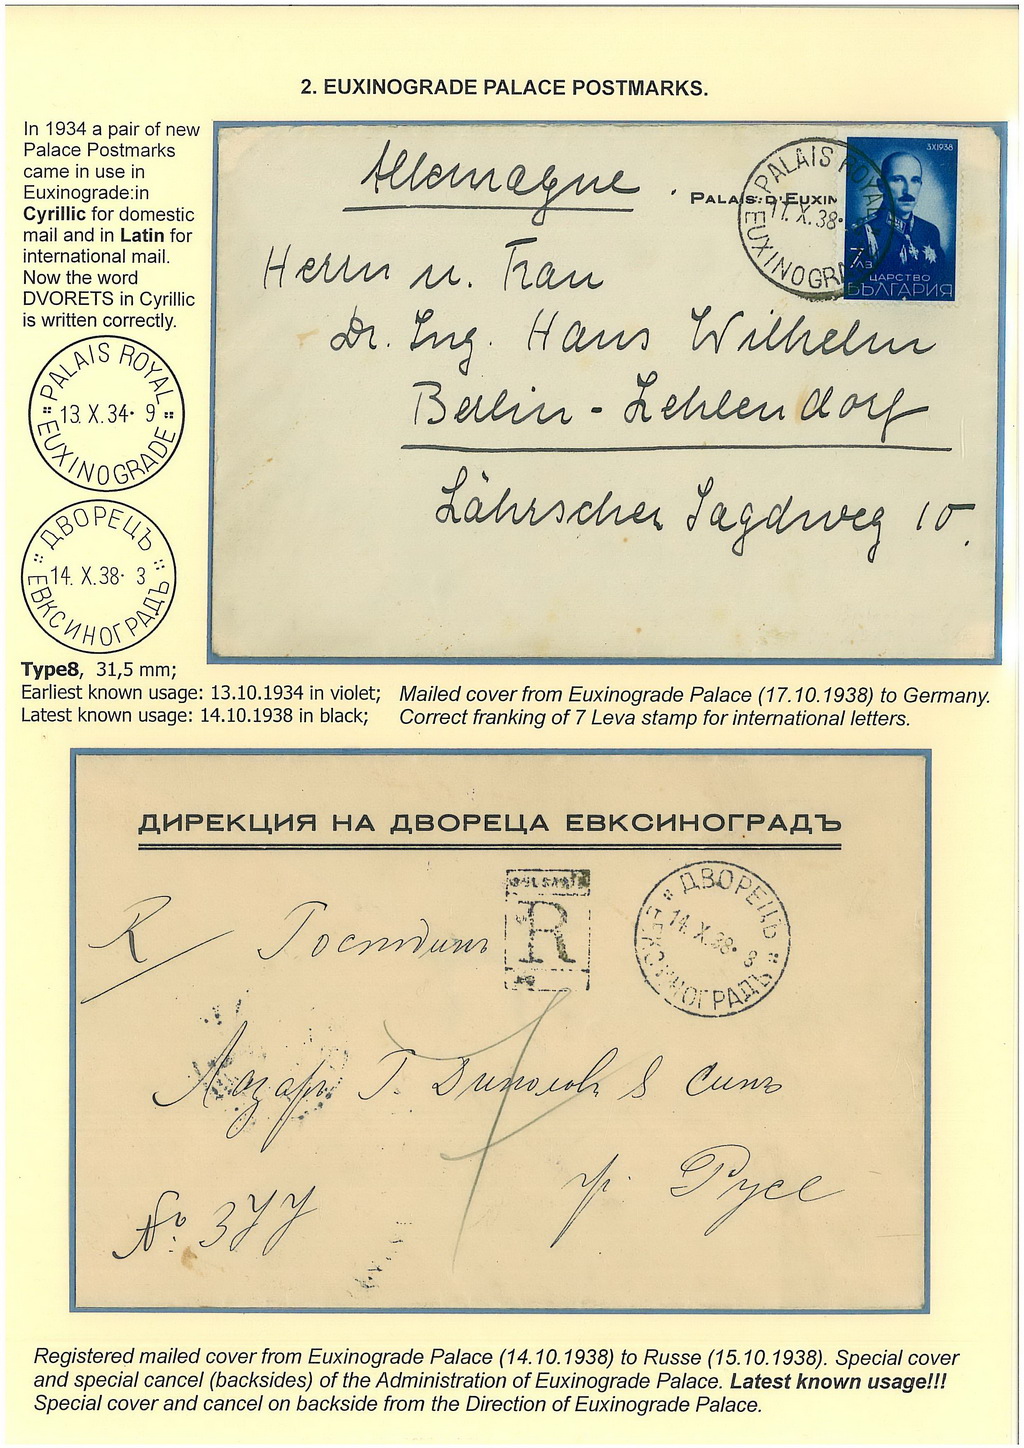 2. EUXINOGRADE PALACE POSTMARKS.
In 1934 a pair of new
Palace Postmarks
came in use in
Euxinograde:in
Cyrillic for domestic
mail and in Latin for
international mail.
Now the word
DVORETS in Cyrillic
is written correctly.
PALAIS ROYAL
13. X. 34· 9
EUXINOGRADE
ДВОРЕЦЪ
14. X. 38· 3
ЕВКСИНОГРАДЪ
Type8, 31,5 mm;
Earliest known usage: 13.10.1934 in violet;
Latest known usage: 14.10.1938 in black;
Allemagne
PALAIS·D'EUXIN
PALAIS ROYAL
17. X. 38·
EUXINOGRA
3XI938
7 ЛВ
ЦАРСТВО
БЪЛГАРИЯ
Herrn u. Frau
Dr. Ing. Hans Wilhelm
Berlin - Zehlendorf
Jagdweg 10.
Mailed cover from Euxinograde Palace (17.10.1938) to Germany.
Correct franking of 7 Leva stamp for international letters.
ДИРЕКЦИЯ НА ДВОРЕЦА ЕВКСИНОГРАДЪ
R
Господинъ
R
ДВОРЕЦЪ
14. X. 38· 8
ЕВКСИНОГРАДЪ
Лазаръ Г. & Синъ
гр. Русе
Registered mailed cover from Euxinograde Palace (14.10.1938) to Russe (15.10.1938). Special cover
and special cancel (backsides) of the Administration of Euxinograde Palace. Latest known usage!!!
Special cover and cancel on backside from the Direction of Euxinograde Palace.